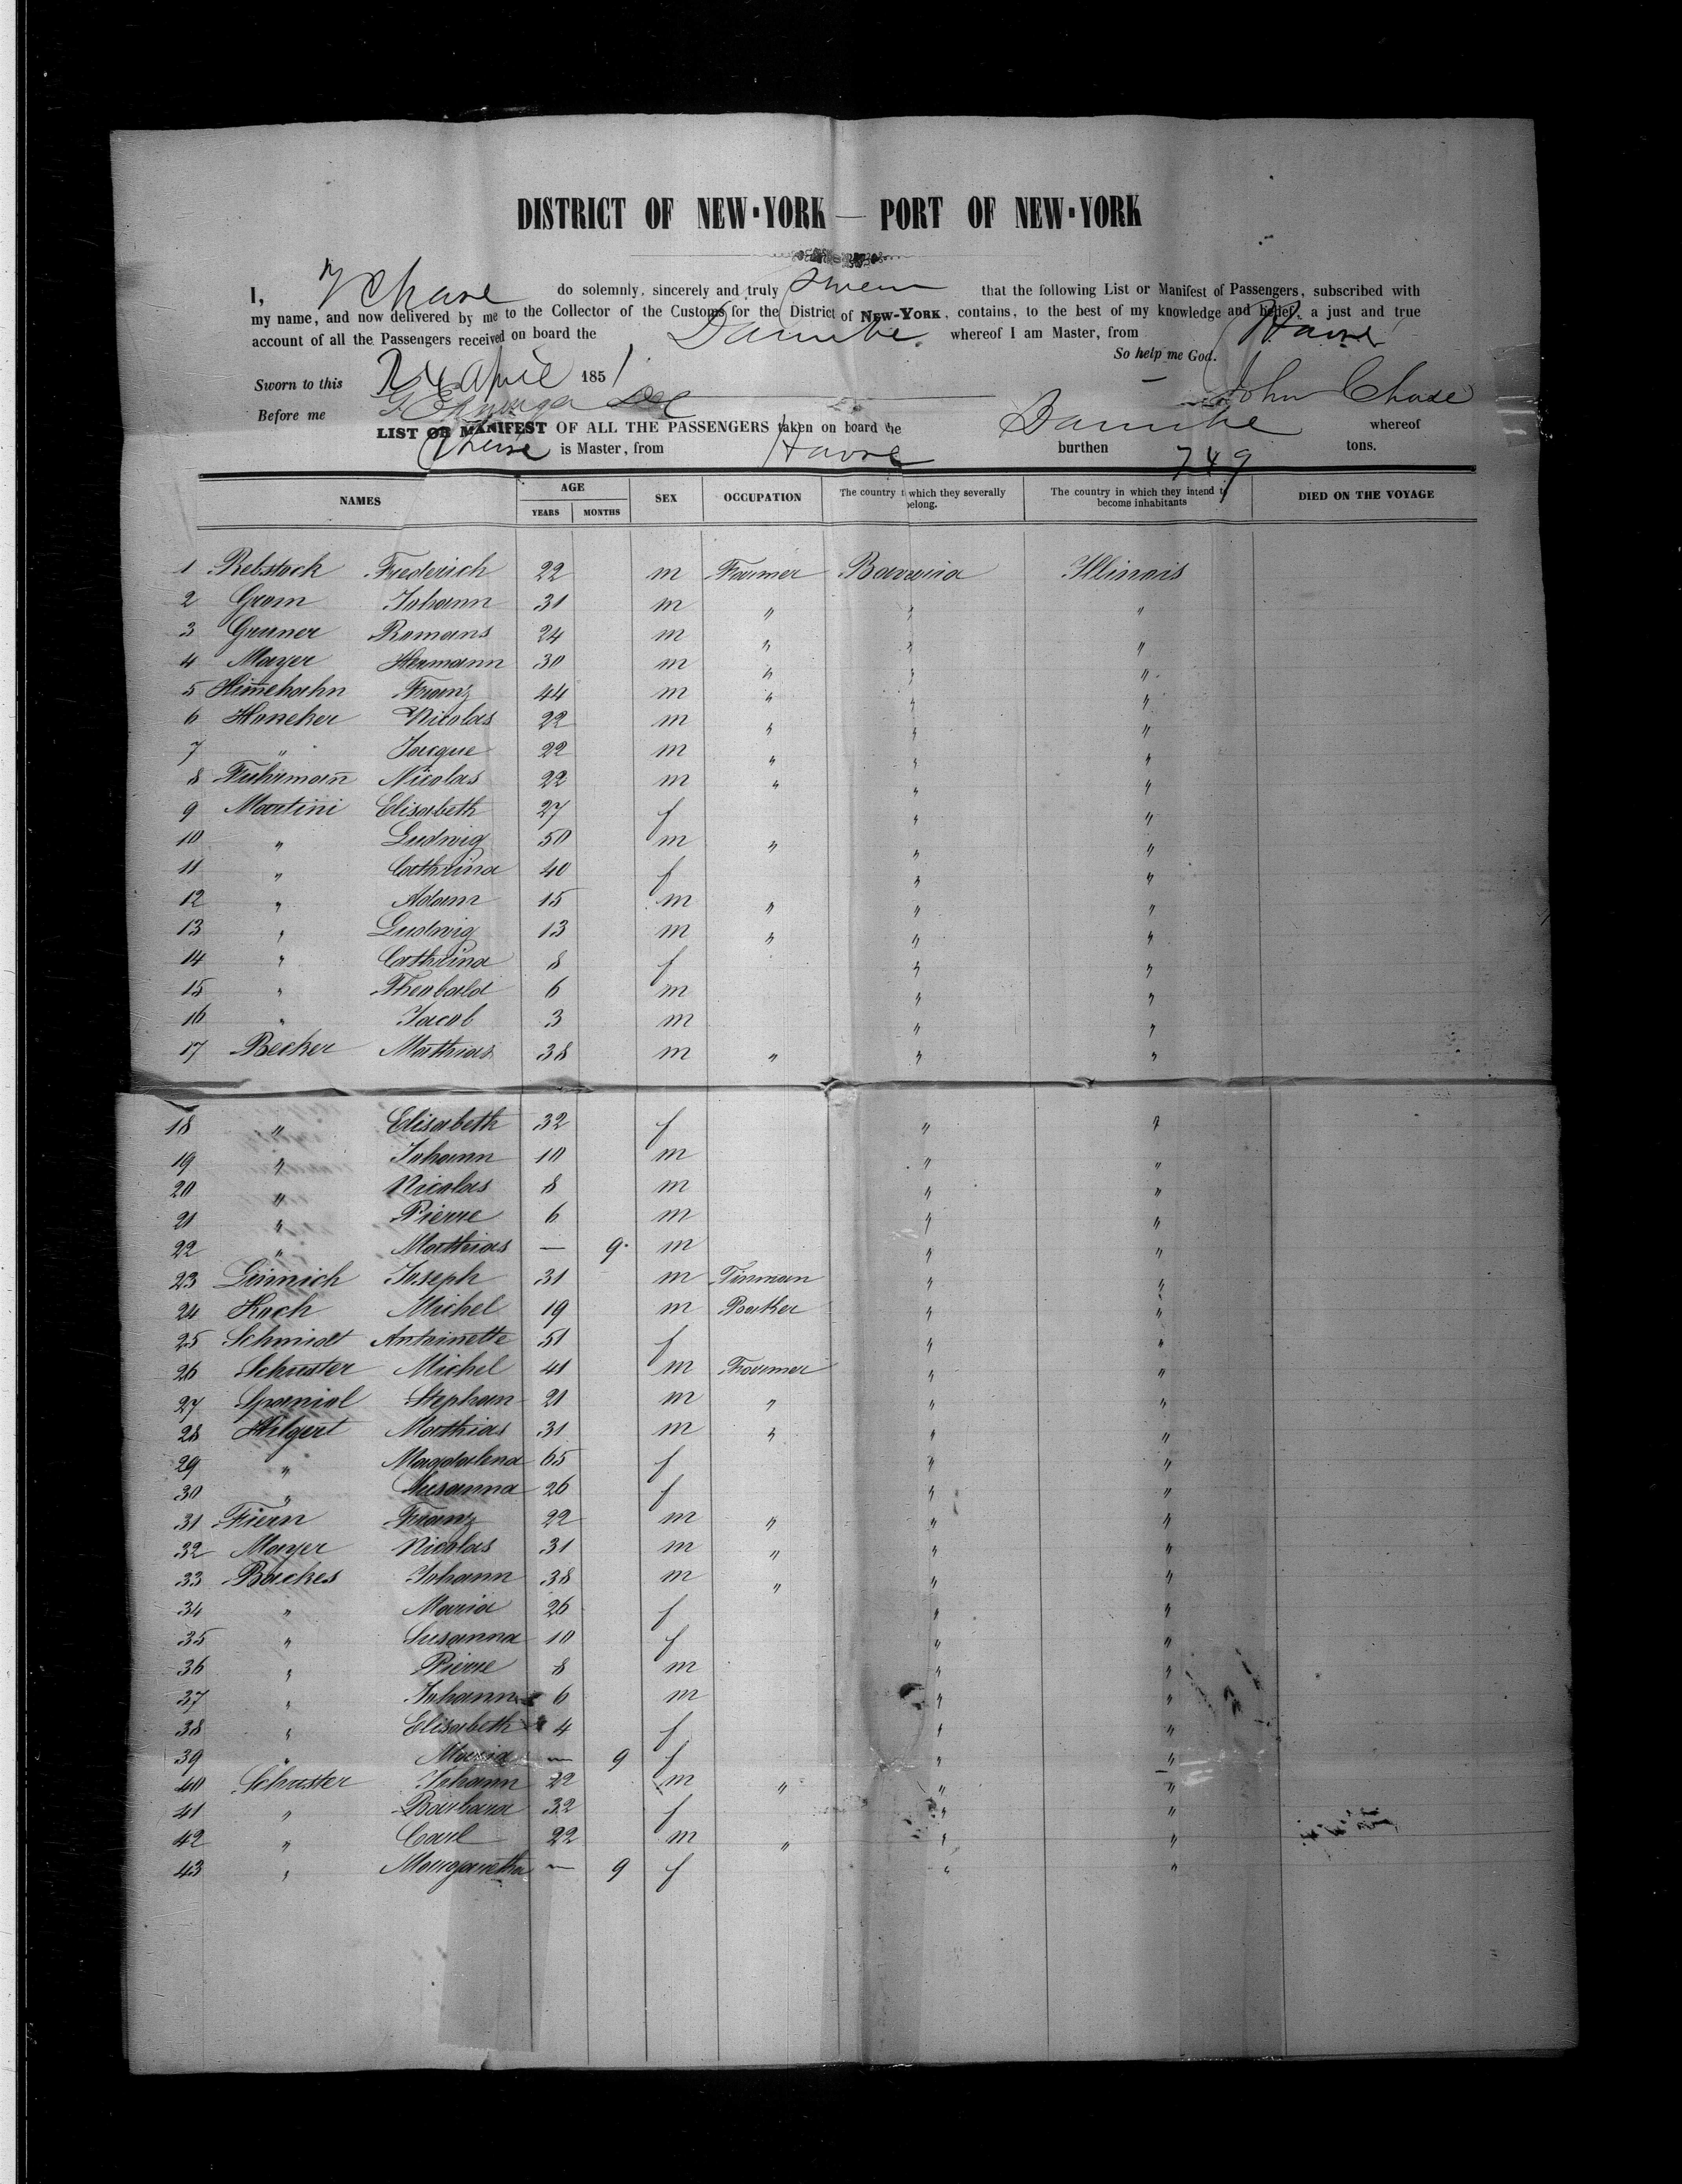 DISTRICT OF NEW-YORK — PORT OF NEW-YORK
I, J Chase do solemnly, sincerely and truly swear that the following List or Manifest of Passengers, subscribed with
my name, and now delivered by me to the Collector of the Customs for the District of NEW-YORK, contains, to the best of my knowledge and belief, a just and true
account of all the Passengers received on board the Danube whereof I am Master, from Havre
So help me God.
Sworn to this 24 April 1851
John Chase
Before me
LIST OR MANIFEST OF ALL THE PASSENGERS taken on board the Danube whereof
Chase is Master, from Havre burthen 749 tons.
NAMES AGE YEARS MONTHS SEX OCCUPATION The country to which they severally belong. The country in which they intend to become inhabitants DIED ON THE VOYAGE
1 Rebstock Frederich 22 m Farmer Bavaria Illinois
2 Gram Johann 31 m " " "
3 Gruner Romans 24 m " " "
4 Mayer Hermann 30 m " " "
5 Himehahn Franz 44 m " " "
6 Honeker Nicolas 22 m " " "
7 " Jacque 22 m " " "
8 Fuhrmann Nicolas 22 m " " "
9 Martini Elisabeth 27 f " "
10 " Ludwig 50 m " " "
11 " Cathrina 40 f " "
12 " Adam 15 m " " "
13 " Ludwig 13 m " " "
14 " Cathrina 8 f " "
15 " Theobald 6 m " "
16 " Jacob 3 m " "
17 Becker Mathias 38 m " " "
18 " Elisabeth 32 f " "
19 " Johann 10 m " "
20 " Nicolas 8 m " "
21 " Pierre 6 m " "
22 " Mathias — 9 m " "
23 Dimich Joseph 31 m Tinman " "
24 Koch Michel 19 m Baker " "
25 Schmidt Antoinette 51 f " "
26 Schuster Michel 41 m Farmer " "
27 Spaniol Stephan 21 m " " "
28 Hilgert Mathias 31 m " " "
29 " Magdalena 65 f " "
30 " Susanna 26 f " "
31 Fiern Franz 22 m " " "
32 Mayer Nicolas 31 m " " "
33 Backes Johann 38 m " " "
34 " Maria 26 f " "
35 " Susanna 10 f " "
36 " Pierre 8 m " "
37 " Johann 6 m " "
38 " Elisabeth 4 f " "
39 " Maria — 9 f " "
40 Schuster Johann 22 m " " "
41 " Barbara 32 f " "
42 " Carl 22 m " " "
43 " Margaretha — 9 f " "